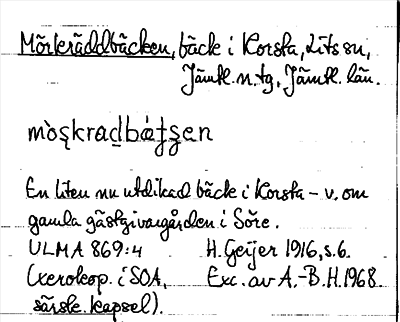 Mörkräddbäcken, bäck i Korsta, Lits sn,
Jämtl. n. tg, Jämtl. län.
mòs̨kradbátjs̨en
En liten nu utdikad bäck i Korsta – v. om
gamla gästgivargården i Söre.
ULMA 869:4 H. Geijer 1916, s. 6.
(xerokop. i SOA, Exc. av A.-B. H. 1968
särsk. kapsel).